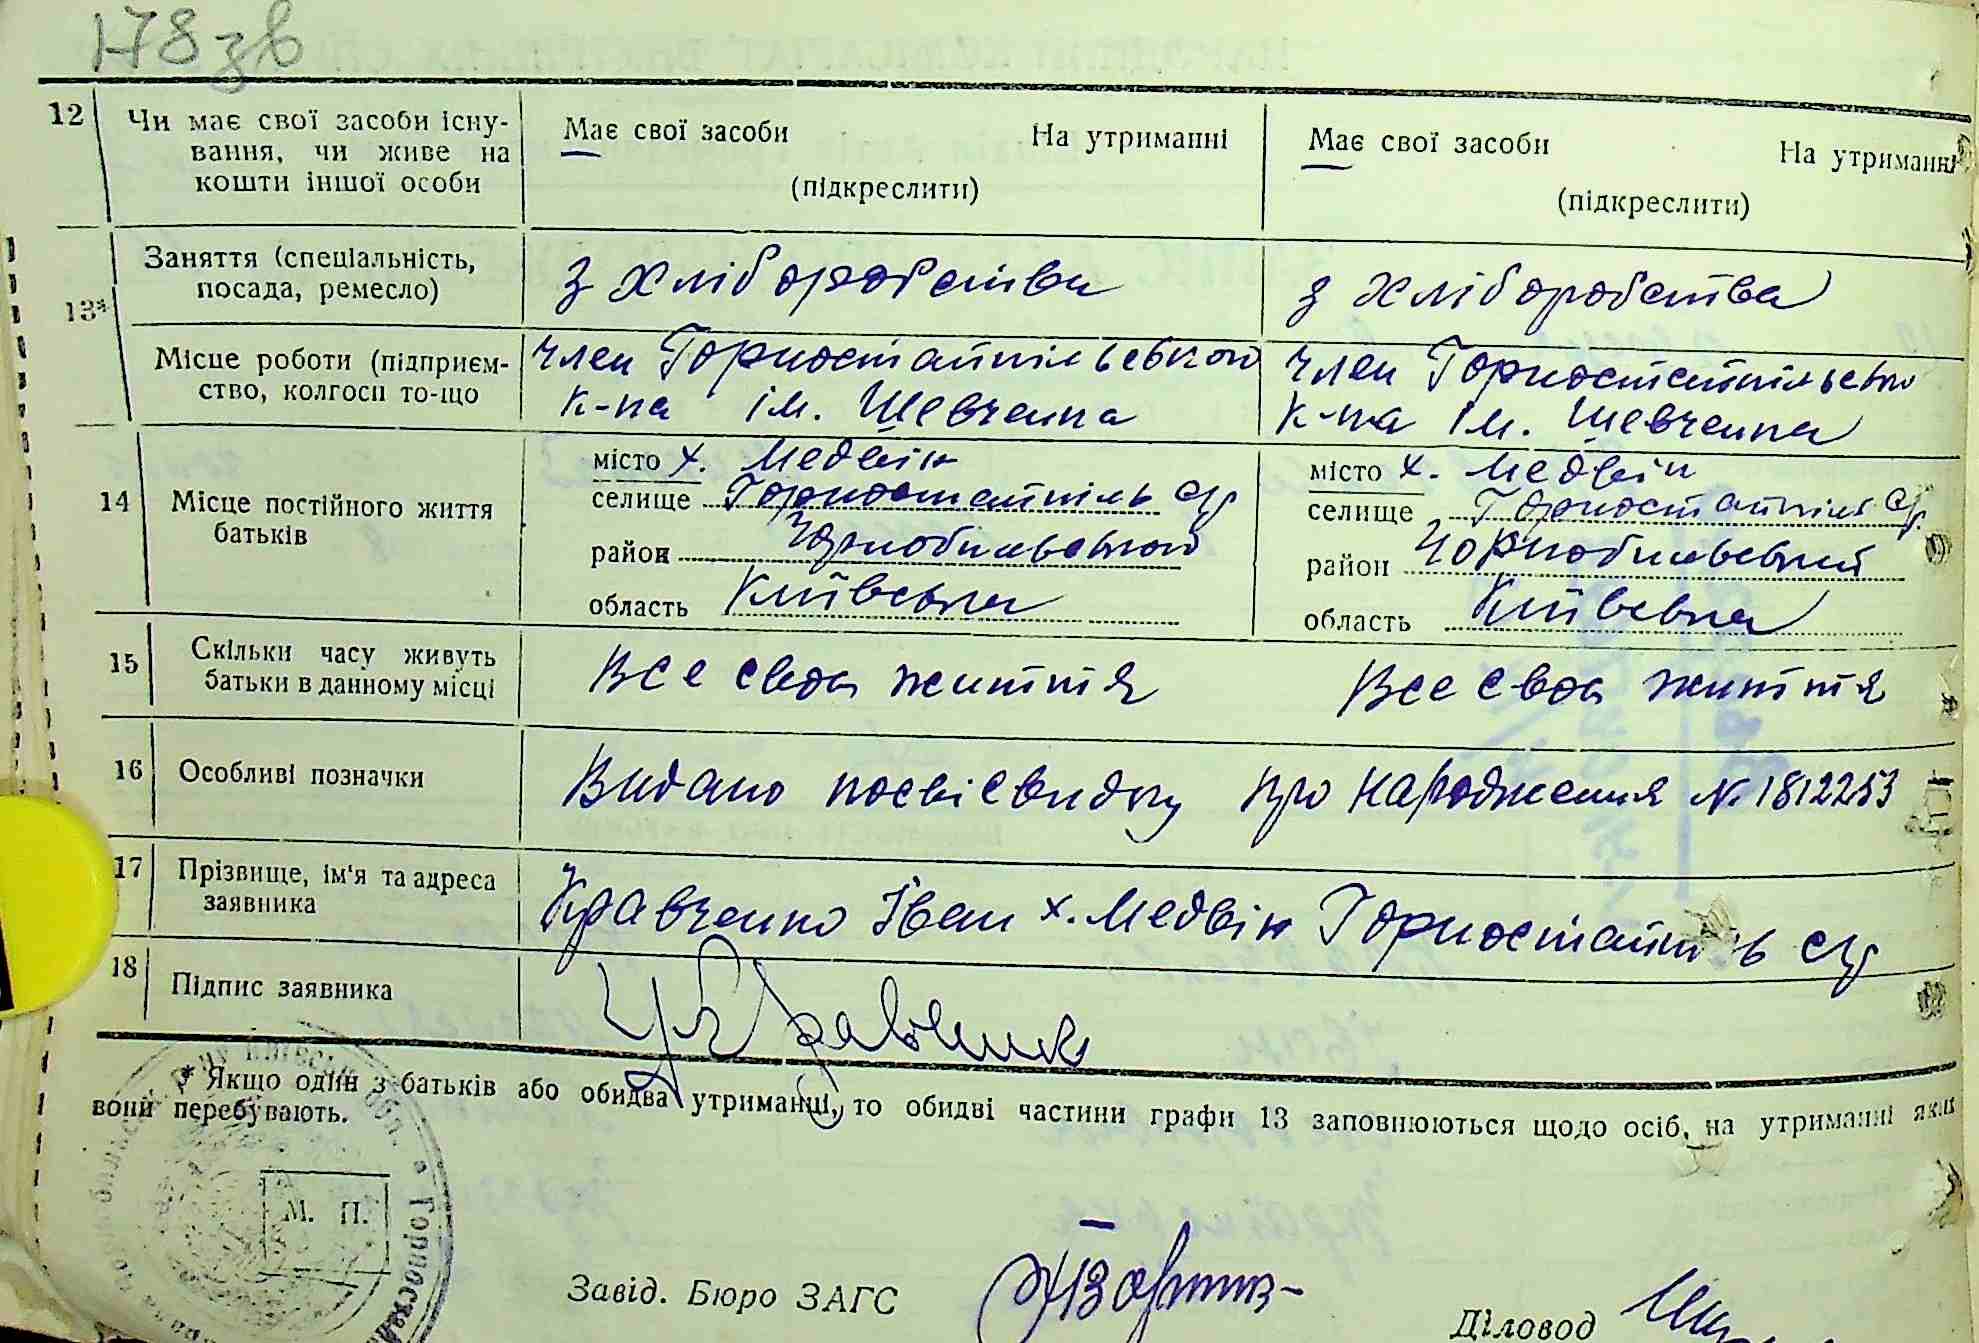 178 зв
12 Чи має свої засоби існу-
вання, чи живе на
кошти іншої особи
Має свої засоби На утриманні
(підкреслити)
Має свої засоби На утриманні
(підкреслити)
13*
Заняття (спеціальність,
посада, ремесло)
з хліборобства
з хліборобства
Місце роботи (підприєм-
ство, колгосп то-що
член Горностайпільського
к-па ім. Шевченка
член Горностайпільсько
к-па ім. Шевченка
14 Місце постійного життя
батьків
місто х. Медвін
селище Горностайпіль с/р
район Чорнобильського
область Київська
місто х. Медвін
селище Горностайпіль с/р
район Чорнобильський
область Київська
15 Скільки часу живуть
батьки в данному місці
Все своа життя Все своа життя
16 Особливі позначки
Видано посвісвидку про народження № 1812253
17 Прізвище, ім'я та адреса
заявника
Кравченко Іван х. Медвін Горностайп ь с/р
18 Підпис заявника
Кравченко
* Якщо один з батьків або обидва утриманці, то обидві частини графи 13 заповнюються щодо осіб, на утриманні яких
вони перебувають.
М. П.
Київської обл. • Горноста
Завід. Бюро ЗАГС
Діловод